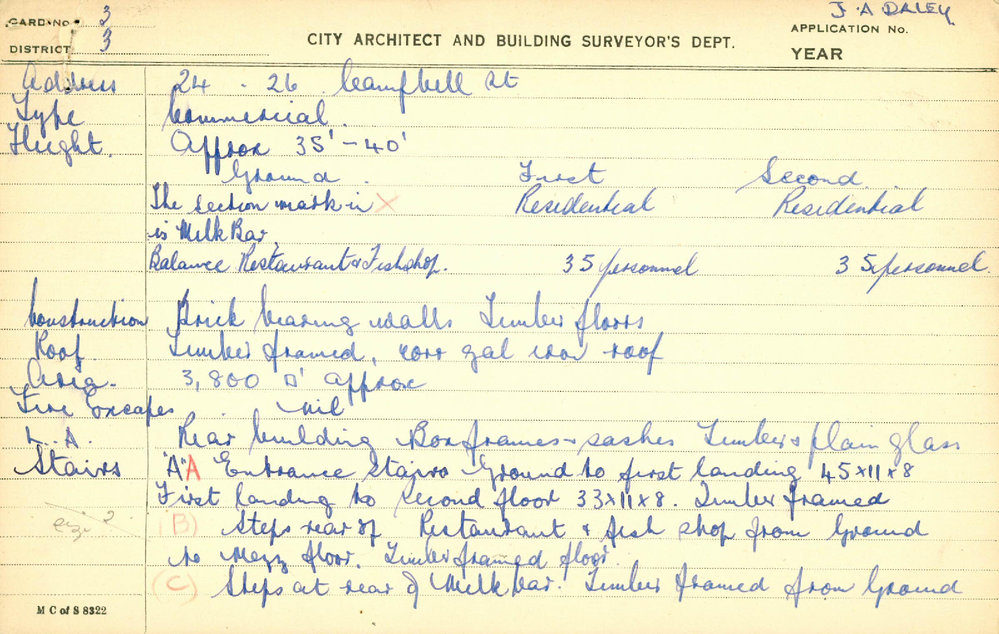 CARD No. 3 J. A DALEY
DISTRICT 3 CITY ARCHITECT AND BUILDING SURVEYOR'S DEPT. APPLICATION No.
YEAR
Address 24 - 26 Campbell St
Type Commercial
Height. Approx 35' - 40'
Ground. First Second
The section mark in X Residential Residential
is Milk Bar
Balance Restaurant & Fishshop. 35 personnel 35 personnel.
Construction Brick bearing walls Timber floors
Roof Timber framed, corr gal iron roof
Area. 3,800 □' approx
Fire Escapes. nil
L. A. Rear building Boxframes & sashes Timber & plain glass
Stairs "A" A Entrance stairs Ground to first landing 45 x 11 x 8
First landing to second floor 33 x 11 x 8. Timber framed
B) Steps rear of Restaurant & fish shop from Ground
to Mezz floor. Timber framed floor.
(C) Steps at rear of Milk bar. Timber framed from Ground
M C of S 8322